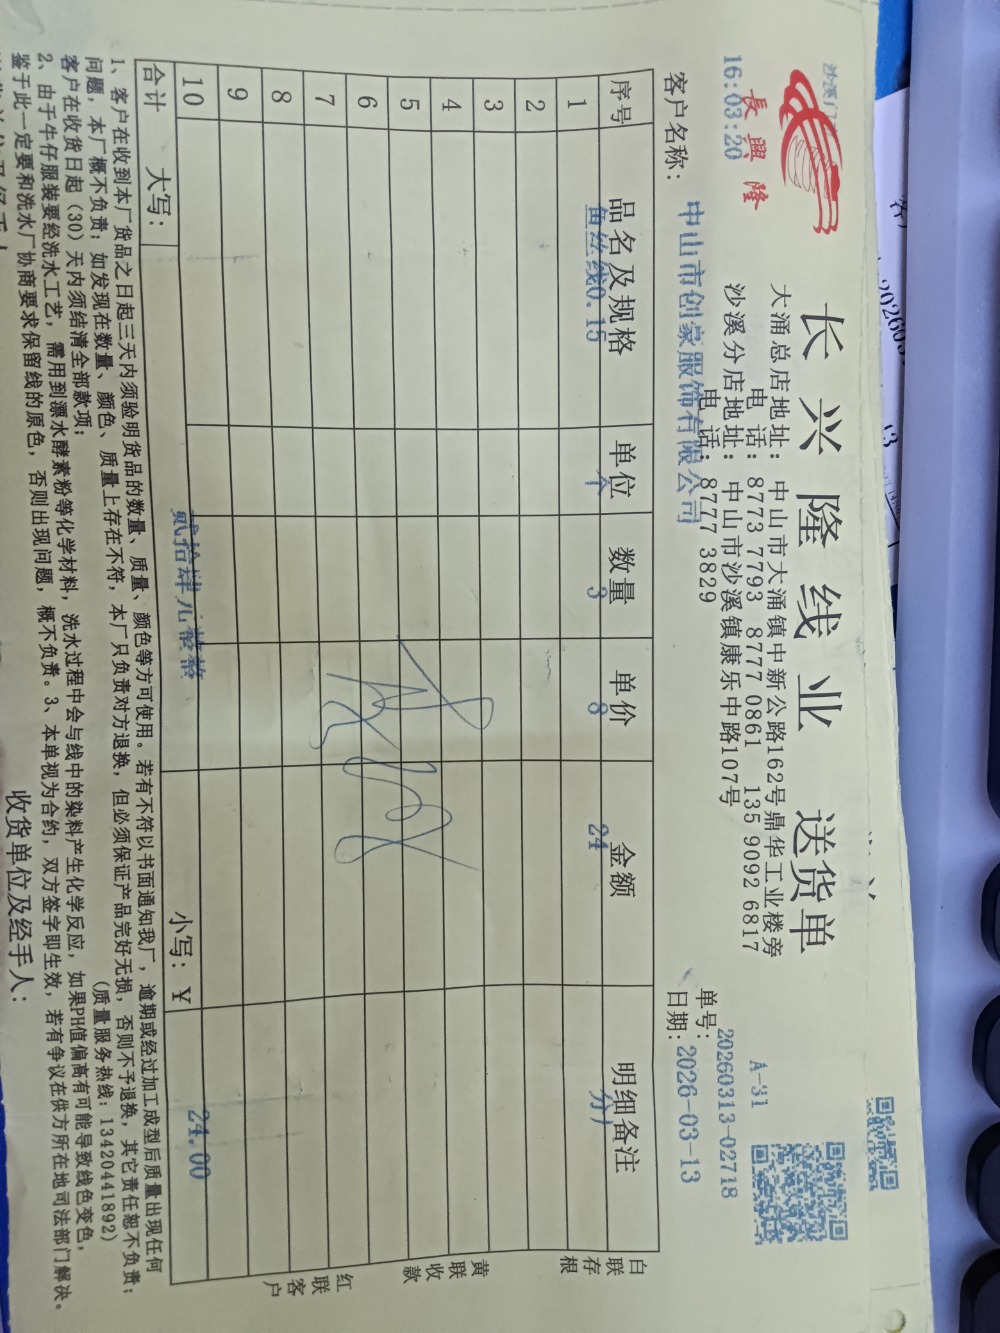 长兴隆线业 送货单
長興隆
沙溪门
16:03:20
大涌总店地址：中山市大涌镇中新公路162号鼎华工业楼旁
电 话：8773 7793 8777 0861 135 9092 6817
沙溪分店地址：中山市沙溪镇康乐中路107号
电 话：8777 3829
A-S1
单号：20260313-02718
客户名称：中山市创豪服饰有限公司
日期：2026-03-13
序号 品名及规格 单位 数量 单价 金额 明细备注
1 鱼丝线0.15 个 3 8 24 分厂
2
3
4
5
6
7
8
9
10
合计 大写：贰拾肆元整整 小写：￥ 24.00
白联存根
黄联收款
红联客户
1、客户在收到本厂货品之日起三天内须验明货品的数量、质量、颜色等方可使用。若有不符以书面通知我厂，逾期或经过加工成型后质量出现任何
问题，本厂概不负责；如发现在数量、颜色、质量上存在不符，本厂只负责对方退换，但必须保证产品完好无损，否则不予退换，其它责任恕不负责；
客户在收货日起（30）天内须结清全部款项；（质量服务热线：13420441892）
2、由于牛仔服装要经洗水工艺，需用到漂水酵素粉等化学材料，洗水过程中会与线中的染料产生化学反应，如果PH值偏高有可能导致线色变色，
鉴于此一定要和洗水厂协商要求保留线的原色，否则出现问题，概不负责。3、本单视为合约，双方签字即生效，若有争议在供方所在地司法部门解决。
收货单位及经手人：